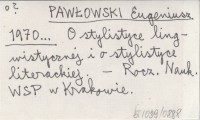 PAWŁOWSKI Eugeniusz
1970... O stylistyce ling-
wistycznej i o stylistyce
literackiej. — Rocz. Nauk.
WSP w Krakowie.